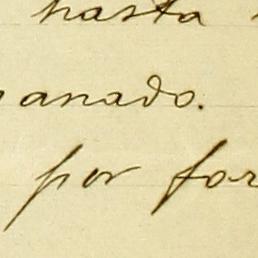 hasta
anado.
por for